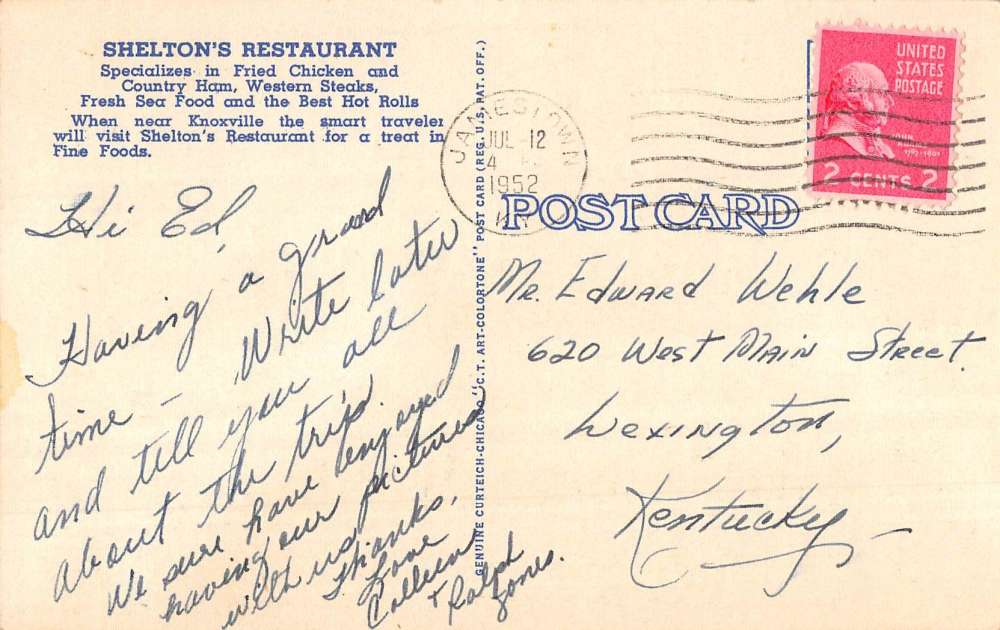 SHELTON'S RESTAURANT
Specializes in Fried Chicken and
Country Ham, Western Steaks,
Fresh Sea Food and the Best Hot Rolls
When near Knoxville the smart traveler
will visit Shelton's Restaurant for a treat in
Fine Foods.
Hi Ed,
Having a grand
time – Write later
and tell you all
about the trip.
We sure have enjoyed
having our pictures
with us.
Thanks,
Love
Colleen
+ Ralph
Jones.
GENUINE CURTEICH-CHICAGO "C.T. ART-COLORTONE" POST CARD (REG. U.S. PAT. OFF.)
JAMESTOWN
JUL 12
4
1952
KY
UNITED
STATES
POSTAGE
JOHN ADAMS
1797-1801
2 CENTS 2
POST CARD
Mr. Edward Wehle
620 West Main Street.
Lexington,
Kentucky –